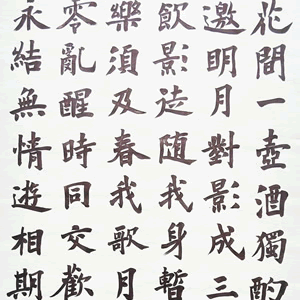 花間一壺酒獨酌
邀明月對影成三
飲影徒随我身暫
樂須及春我歌月
零亂醒時同交歡
永結無情遊相期